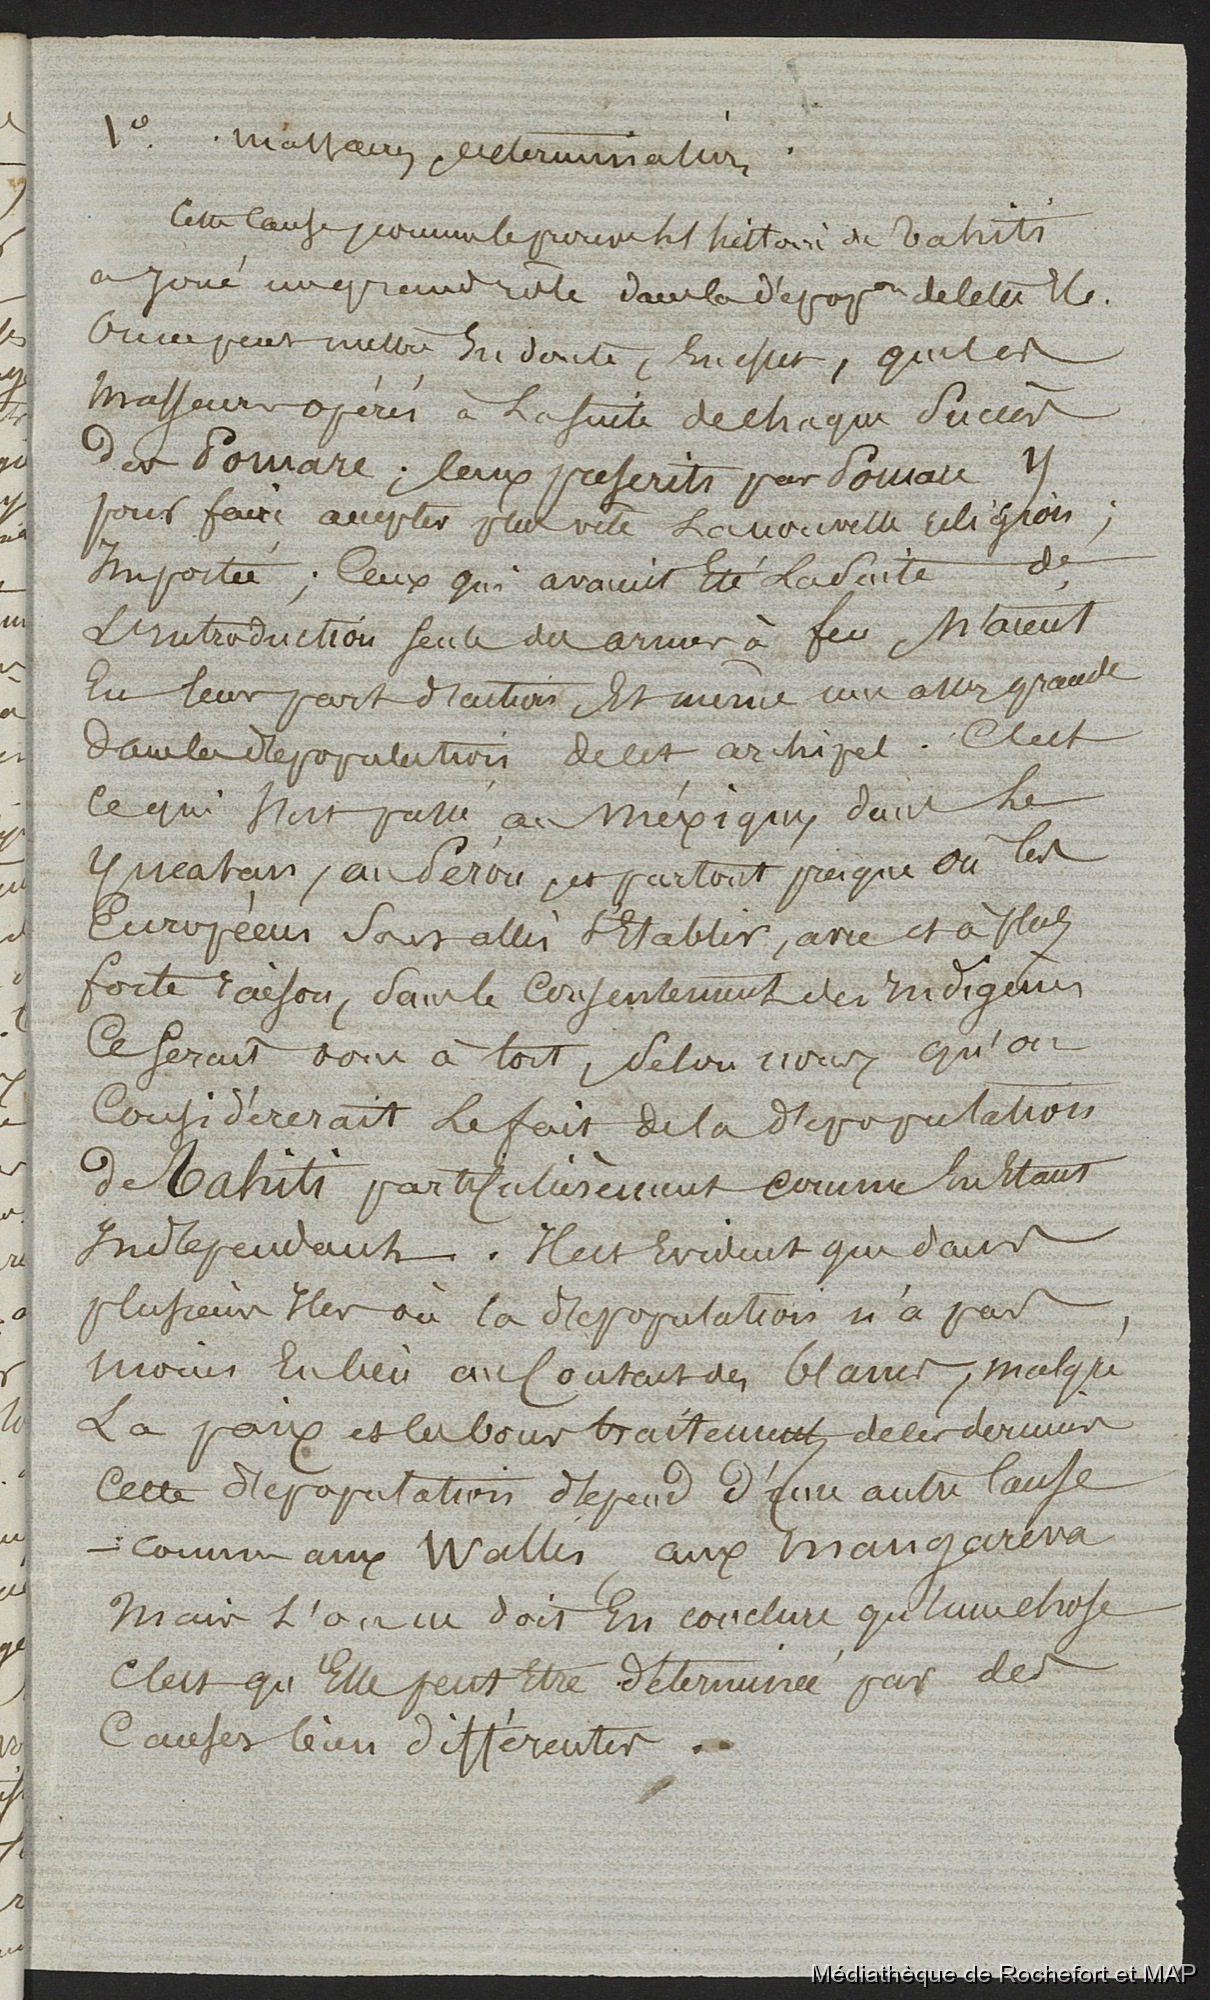 1°. massacres, extermination.
Cette cause, comme le prouve l'histoire de Tahiti
a joué un grand rôle dans la dépop.on de cette Ile.
On ne peut mettre En doute, En effet, que les
Massacres opérés à La suite de chaque succès
des Pomare ; ceux prescrits par Pomare
pour faire accepter plus vite La nouvelle religion ;
Importée ; Ceux qui avaient Eté La suite de
L'Introduction seule des armes à feu, N'aient
Eu leur part d'action, Et même une assez grande
dans la dépopulation de cet archipel. C'est
ce qui s'est passé au Méxique, dans Le
Yucatan, au Pérou, et partout presque où les
Européens sont allés s'Etablir, avec et à plus
forte raison, sans le Consentement des Indigènes
Ce serait donc à tort, selon nous, qu'on
Considérerait Le fait de la dépopulation
de Tahiti particulièrement comme En Etant
Indépendant. Il est Evident que dans
plusieurs Iles où la dépopulation n'a pas,
moins Eu lieu au Contact des blancs, malgré
La paix et les bons traitements de ces derniers
cette dépopulation dépend d'une autre Cause
– comme aux Wallis, aux Mangareva
Mais L'on ne doit En conclure qu'une chose
C'est qu'Elle peut Etre déterminée par des
Causes bien différentes.
Médiathèque de Rochefort et MAP